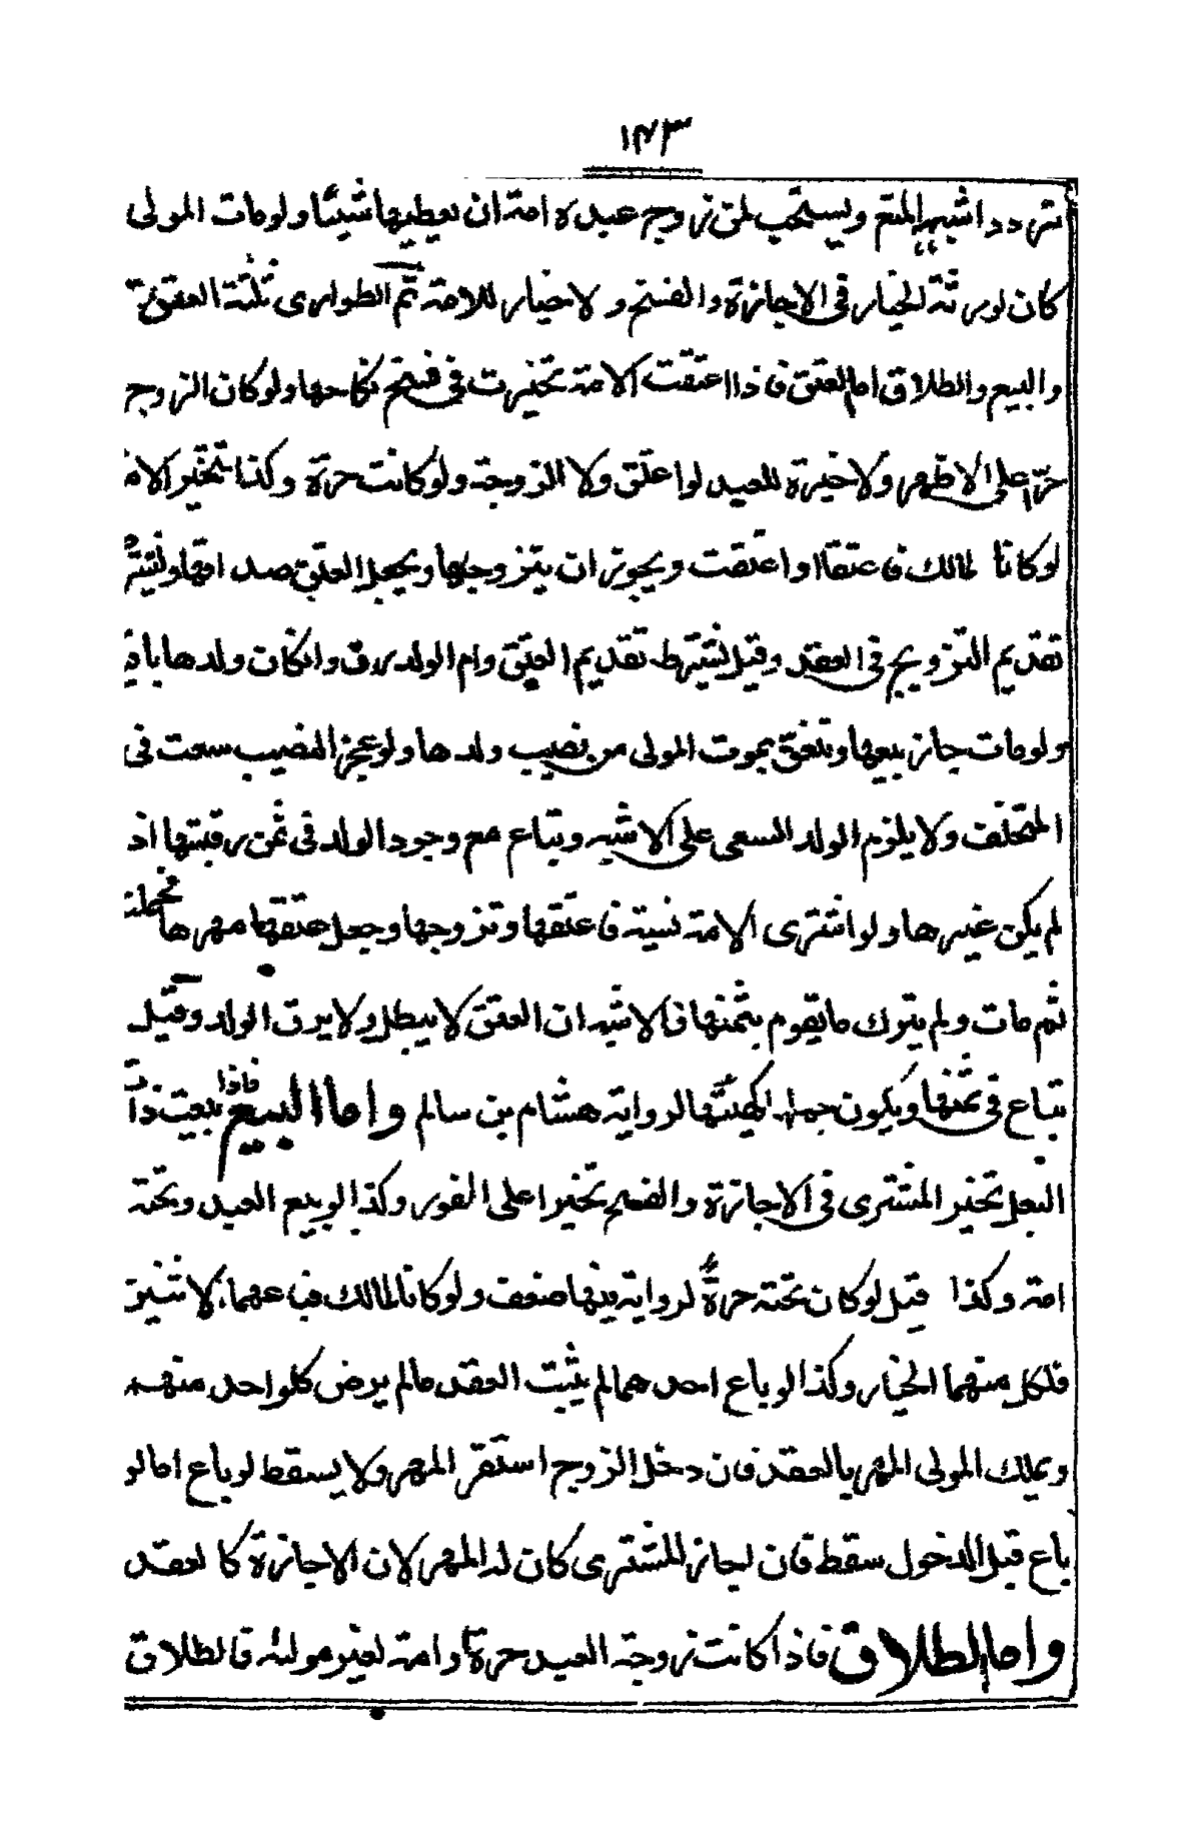 ١٤٣
تردد اشبهه المنع ويستحب لمن زوج عبده امته ان يعطيها شيئا ولو مات المولى
كان لورثة الخيار فى الاجازة والفسخ ولا خيار للامة ثم الطوارى ثلثة العتق
والبيع والطلاق اما العتق فاذا اعتقت الامة تخيرت فى فسخ نكاحها ولو كان الزوج
حرّا على الاظهر ولا خيرة للعبد لو اعتق ولا الزوجة ولو كانت حرة وكذا تتخير الامة
لو كانا لمالك فاعتقا او اعتقت ويجوز ان يتزوجها ويجعل العتق صداقها ويشترط
تقديم التزويج فى العقد وقيل يشترط تقديم العتق وام الولد رق وان كان ولدها باقيا
ولو مات جاز بيعها وتنعتق بموت المولى من نصيب ولدها ولو عجز النصيب سعت فى
المتخلف ولا يلزم الولد السعى على الاشبه وتباع مع وجود الولد فى ثمن رقبتها اذ
لم يكن غيرها ولو اشترى الامة نسية فاعتقها وتزوجها وجعل عتقها مهرها فحملت
ثم مات ولم يترك ما يقوم بثمنها فالاشبه ان العتق لا يبطل ولا يرق الولد وقيل
تباع فى ثمنها ويكون حملها كهيئتها لرواية هشام بن سالم واما البيع فاذا بيعت ذات
البعل تخير المشترى فى الاجازة والفسخ تخيرا على الفور وكذا لو بيع العبد وتحته
امة وكذا قيل لو كان تحته حرة لرواية فيها ضعف ولو كانا لمالك فباعهما لاثنين
فلكل منهما الخيار وكذا لو باع احدهما لم يثبت العقد ما لم يرض كلواحد منهم
ويملك المولى المهر بالعقد فان دخل الزوج استقر المهر ولا يسقط لو باع اما لو
باع قبل الدخول سقط فان اجاز المشترى كان له المهر لان الاجازة كالعقد
واما الطلاق فاذا كانت زوجة العبد حرة او امة لغير مولاه فالطلاق